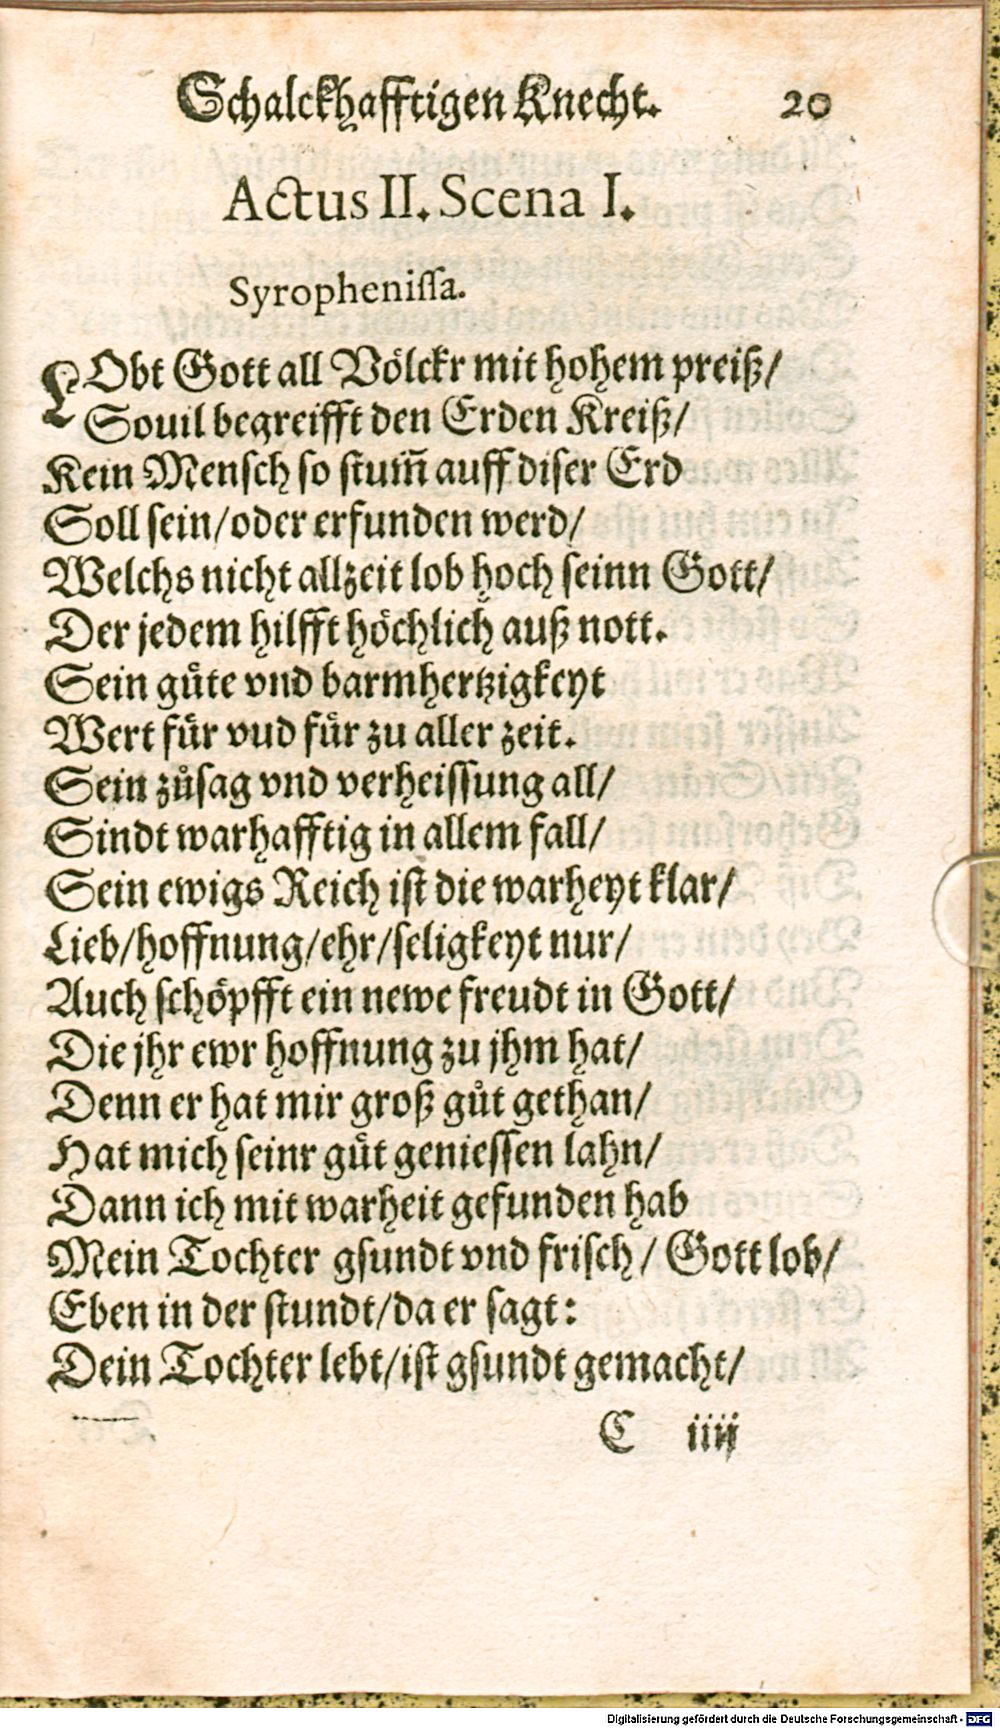 Schalckhafftigen Knecht. 20
Actus II. Scena I.
Syrophenissa.
LObt Gott all Völckr mit hohem preiß/
Souil begreifft den Erden Kreiß/
Kein Mensch so stum̃ auff diser Erd
Soll sein/oder erfunden werd/
Welchs nicht allzeit lob hoch seinn Gott/
Der jedem hilfft höchlich auß nott.
Sein guͤte vnd barmhertzigkeyt
Wert fuͤr vud fuͤr zu aller zeit.
Sein zuͦsag vnd verheissung all/
Sindt warhafftig in allem fall/
Sein ewigs Reich ist die warheyt klar/
Lieb/hoffnung/ehr/seligkeyt nur/
Auch schöpfft ein newe freudt in Gott/
Die jhr ewr hoffnung zu jhm hat/
Denn er hat mir groß guͦt gethan/
Hat mich seinr guͤt geniessen lahn/
Dann ich mit warheit gefunden hab
Mein Tochter gsundt vnd frisch/ Gott lob/
Eben in der stundt/da er sagt:
Dein Tochter lebt/ist gsundt gemacht/
C iiij
Digitalisierung gefördert durch die Deutsche Forschungsgemeinschaft - DFG